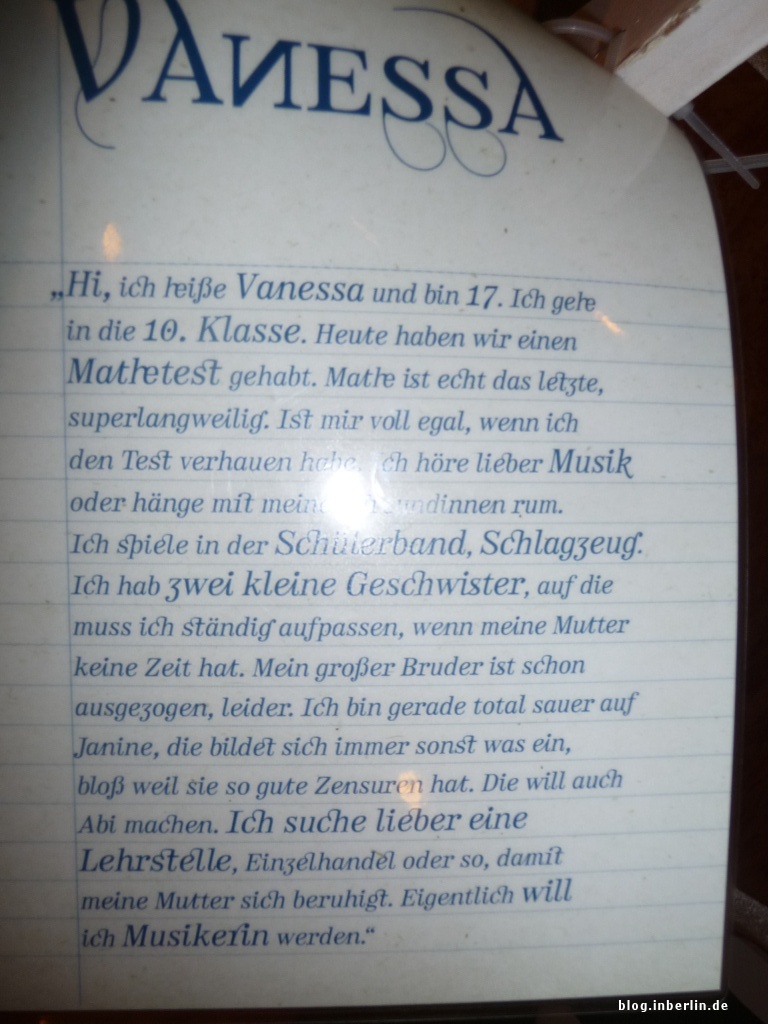 VANESSA
„Hi, ich heiße Vanessa und bin 17. Ich gehe
in die 10. Klasse. Heute haben wir einen
Mathetest gehabt. Mathe ist echt das letzte,
superlangweilig. Ist mir voll egal, wenn ich
den Test verhauen habe. Ich höre lieber Musik
oder hänge mit meinen Freundinnen rum.
Ich spiele in der Schülerband, Schlagzeug.
Ich hab zwei kleine Geschwister, auf die
muss ich ständig aufpassen, wenn meine Mutter
keine Zeit hat. Mein großer Bruder ist schon
ausgezogen, leider. Ich bin gerade total sauer auf
Janine, die bildet sich immer sonst was ein,
bloß weil sie so gute Zensuren hat. Die will auch
Abi machen. Ich suche lieber eine
Lehrstelle, Einzelhandel oder so, damit
meine Mutter sich beruhigt. Eigentlich will
ich Musikerin werden.“
blog.inberlin.de